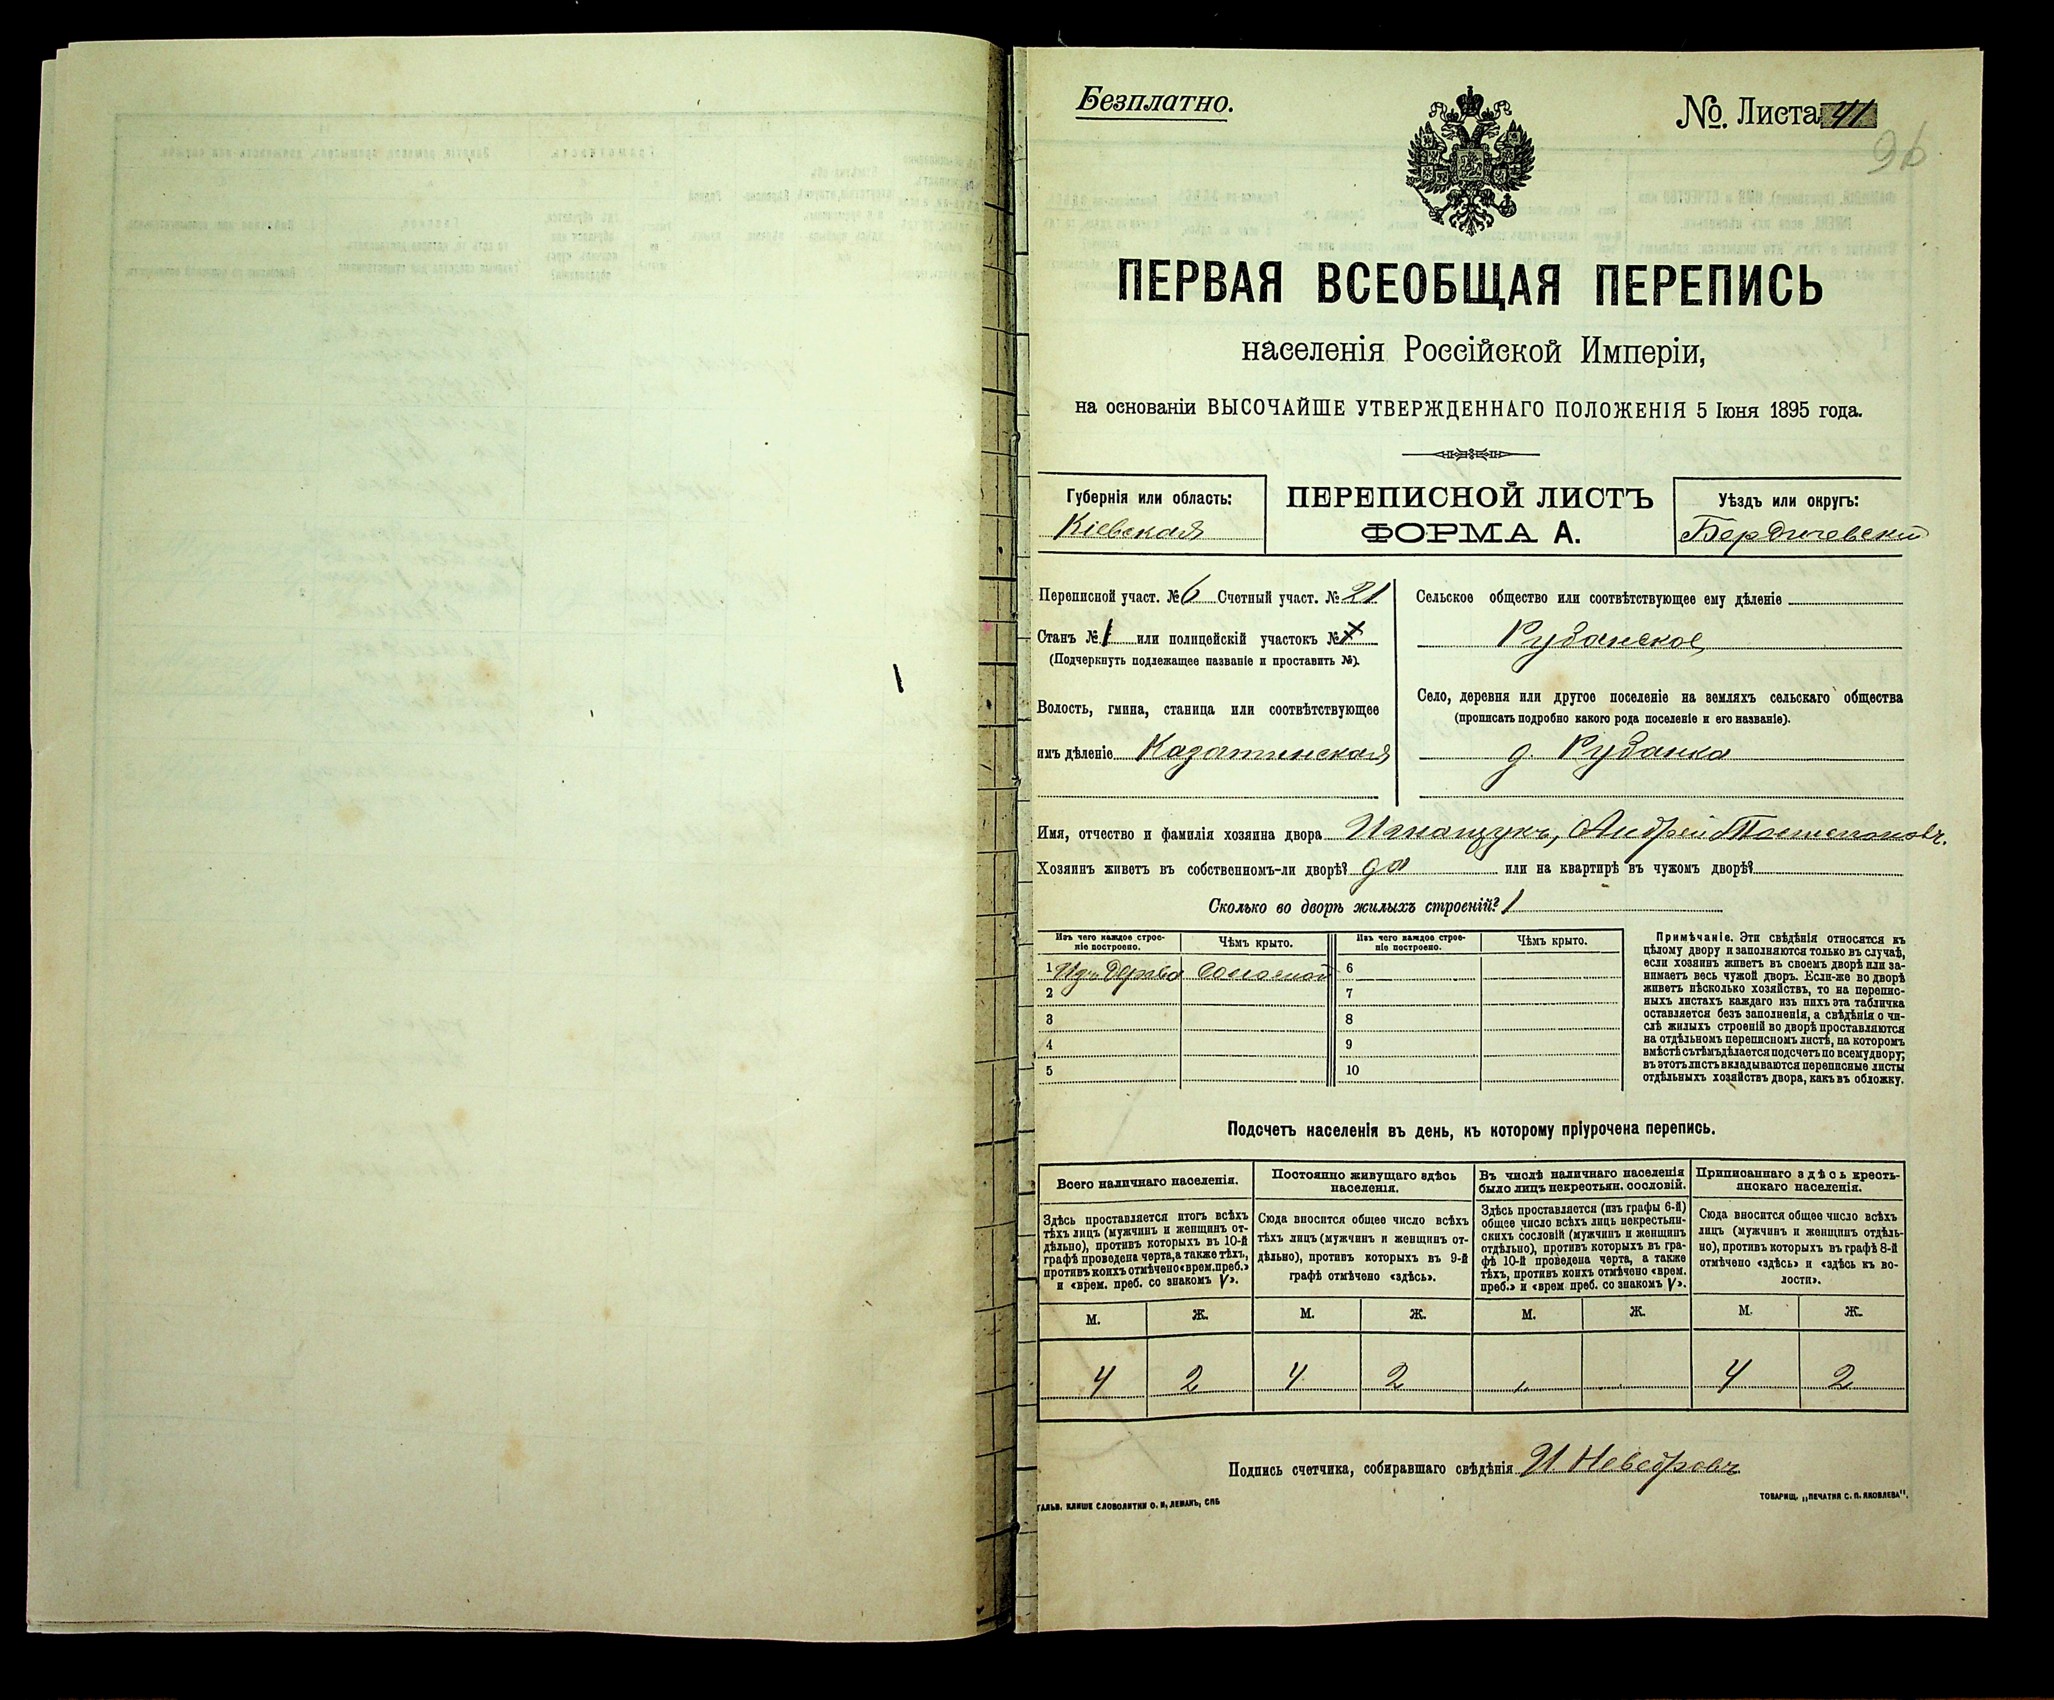 Безплатно.
№ Листа 41
96
ПЕРВАЯ ВСЕОБЩАЯ ПЕРЕПИСЬ
населенія Россійской Имперіи,
на основаніи ВЫСОЧАЙШЕ УТВЕРЖДЕННАГО ПОЛОЖЕНІЯ 5 Іюня 1895 года.
Губернія или область:
Кіевская
ПЕРЕПИСНОЙ ЛИСТЪ
ФОРМА А.
Уѣздъ или округъ:
Бердичевскій
Переписной участ. № 6 Счетный участ. № 21
Станъ № 1 или полицейскій участокъ №
(Подчеркнуть подлежащее названіе и проставить №).
Волость, гмина, станица или соотвѣтствующее
имъ дѣленіе Казатинская
Сельское общество или соотвѣтствующее ему дѣленіе
Рубанское
Село, деревня или другое поселеніе на земляхъ сельскаго общества
(прописать подробно какого рода поселеніе и его названіе).
д. Рубанка
Имя, отчество и фамилія хозяина двора Игнащукъ, Андрей
Хозяинъ живетъ въ собственномъ-ли дворѣ? да или на квартирѣ въ чужомъ дворѣ?
Сколько во дворѣ жилыхъ строеній? 1
Изъ чего каждое строе-
ніе построено.
Чѣмъ крыто.
Изъ чего каждое строе-
ніе построено.
Чѣмъ крыто.
1 Изъ дерева соломой 6
2 7
3 8
4 9
5 10
Примѣчаніе. Эти свѣдѣнія относятся къ
цѣлому двору и заполняются только въ случаѣ,
если хозяинъ живетъ въ своемъ дворѣ или за-
нимаетъ весь чужой дворъ. Если-же во дворѣ
живетъ нѣсколько хозяйствъ, то на перепис-
ныхъ листахъ каждаго изъ нихъ эта табличка
оставляется безъ заполненія, а свѣдѣнія о чи-
слѣ жилыхъ строеній во дворѣ проставляются
на отдѣльномъ переписномъ листѣ, на которомъ
вмѣстѣ съ тѣмъ дѣлается подсчетъ по всему двору;
въ этотъ листъ вкладываются переписные листы
отдѣльныхъ хозяйствъ двора, какъ въ обложку.
Подсчетъ населенія въ день, къ которому пріурочена перепись.
Всего наличнаго населенія.
Здѣсь проставляется итогъ всѣхъ
тѣхъ лицъ (мужчинъ и женщинъ от-
дѣльно), противъ которыхъ въ 10-й
графѣ проведена черта, а также тѣхъ,
противъ коихъ отмѣчено «врем. преб.»
и «врем. преб. со знакомъ V».
Постоянно живущаго здѣсь
населенія.
Сюда вносится общее число всѣхъ
тѣхъ лицъ (мужчинъ и женщинъ от-
дѣльно), противъ которыхъ въ 9-й
графѣ отмѣчено «здѣсь».
Въ числѣ наличнаго населенія
было лицъ некрестьян. сословій.
Здѣсь проставляется (изъ графы 6-й)
общее число всѣхъ лицъ некрестьян-
скихъ сословій (мужчинъ и женщинъ
отдѣльно), противъ которыхъ въ гра-
фѣ 10-й проведена черта, а также
тѣхъ, противъ коихъ отмѣчено «врем.
преб.» и «врем преб. со знакомъ V».
Приписаннаго здѣсь кресть-
янскаго населенія.
Сюда вносится общее число всѣхъ
лицъ (мужчинъ и женщинъ отдѣль-
но), противъ которыхъ въ графѣ 8-й
отмѣчено «здѣсь» и «здѣсь къ во-
лости».
М. Ж. М. Ж. М. Ж. М. Ж.
4 2 4 2 4 2
Подпись счетчика, собиравшаго свѣдѣнія И. Невѣдровъ
ГАЛЬВ. КЛИШЕ СЛОВОЛИТНИ О. И. ЛЕМАНЪ, СПБ
ТОВАРИЩ. „ПЕЧАТНЯ С. П. ЯКОВЛЕВА".